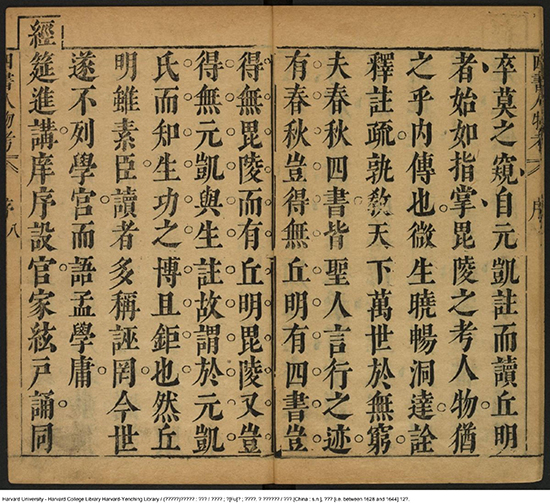 四書人物考 序
卒莫之窺自元凱註而讀丘明
者始如指掌毘陵之考人物猶
之乎内傳也微生曉暢洞達詮
釋註疏孰敎天下萬世於無窮
夫春秋四書皆聖人言行之迹
有春秋豈得無丘明有四書豈
得無毘陵而有丘明毘陵又豈
得無元凱與生註故謂於元凱
氏而知生功之博且鉅也然丘
明雖素臣讀者多稱誣罔今世
遂不列學官而語孟學庸
經筵進講庠序設官家絃戶誦同
四書人物考 序 八
Harvard University - Harvard College Library Harvard-Yenching Library / (??????)????? : ??? / ???? ; ?[Fu]? ; ????. ? ?????? / ??? [China : s.n.], ??? [i.e. between 1628 and 1644] 12?.